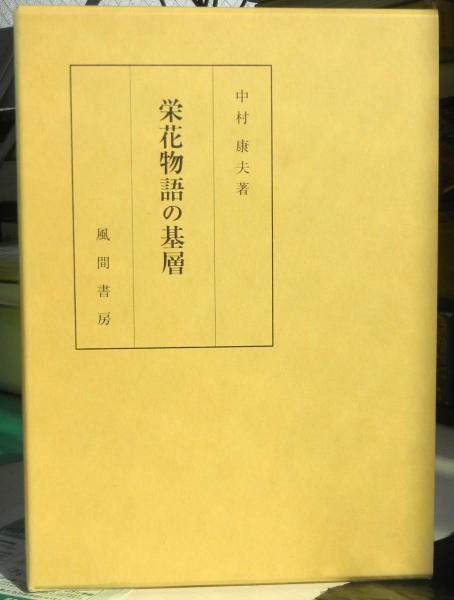 中村 康夫 著
栄花物語の基層
風間書房